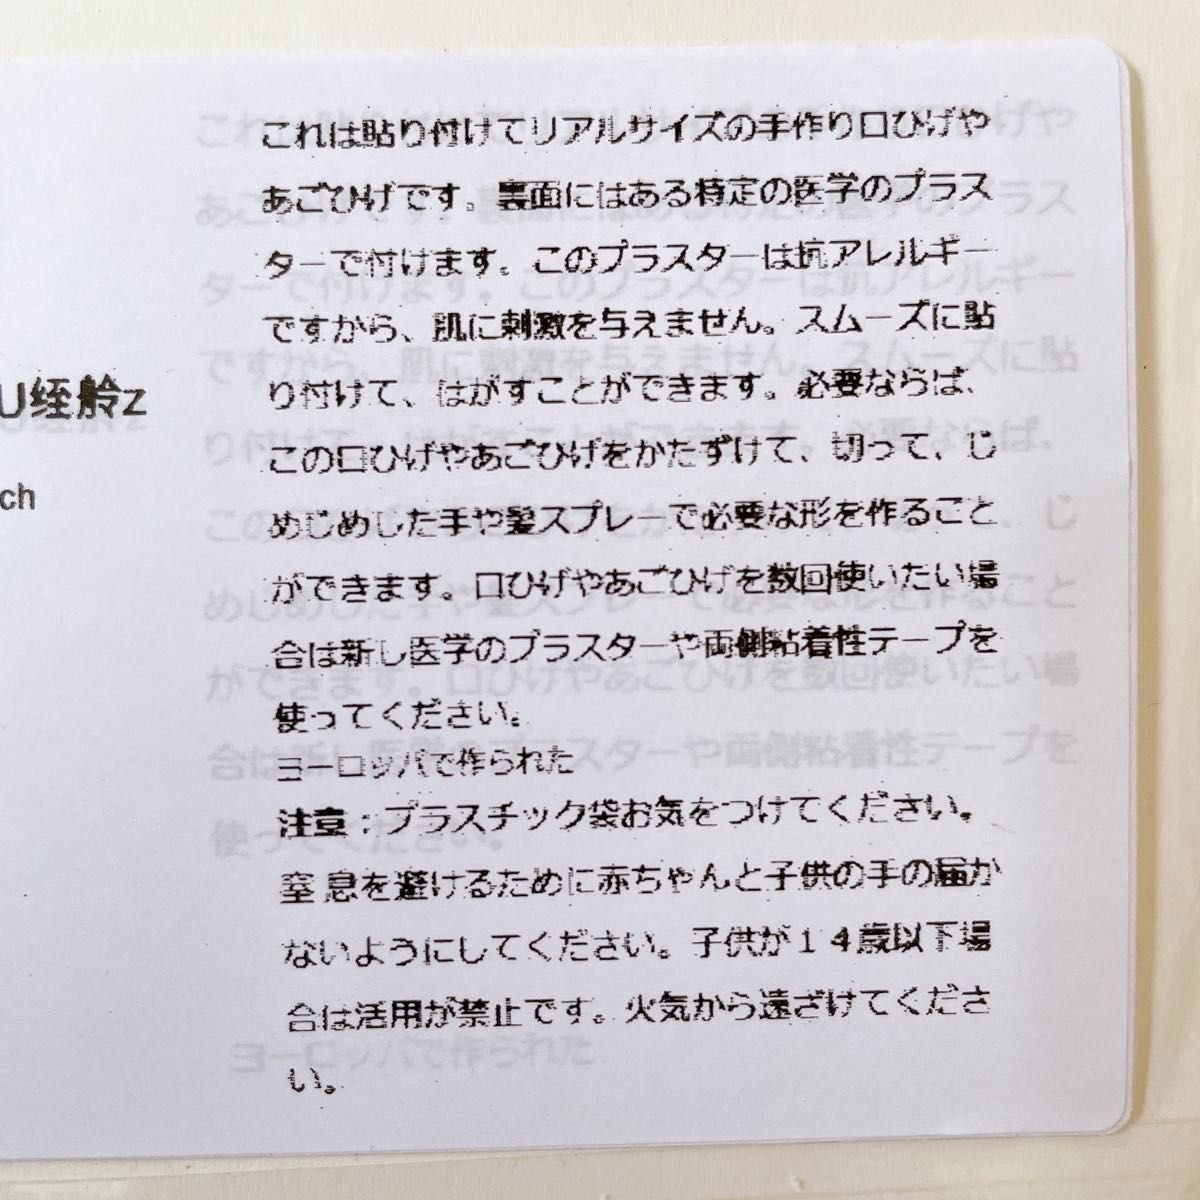 これは貼り付けてリアルサイズの手作り口ひげや
あごひげです。裏面にはある特定の医学のプラス
ターで付けます。このプラスターは抗アレルギー
ですから、肌に刺激を与えません。スムーズに貼
り付けて、はがすことができます。必要ならば、
この口ひげやあごひげをかたずけて、切って、じ
めじめした手や髪スプレーで必要な形を作ること
ができます。口ひげやあごひげを数回使いたい場
合は新し医学のプラスターや両側粘着性テープを
使ってください。
ヨーロッパで作られた
注意：プラスチック袋お気をつけてください。
窒息を避けるために赤ちゃんと子供の手の届か
ないようにしてください。子供が１４歳以下場
合は活用が禁止です。火気から遠ざけてくださ
い。
ch